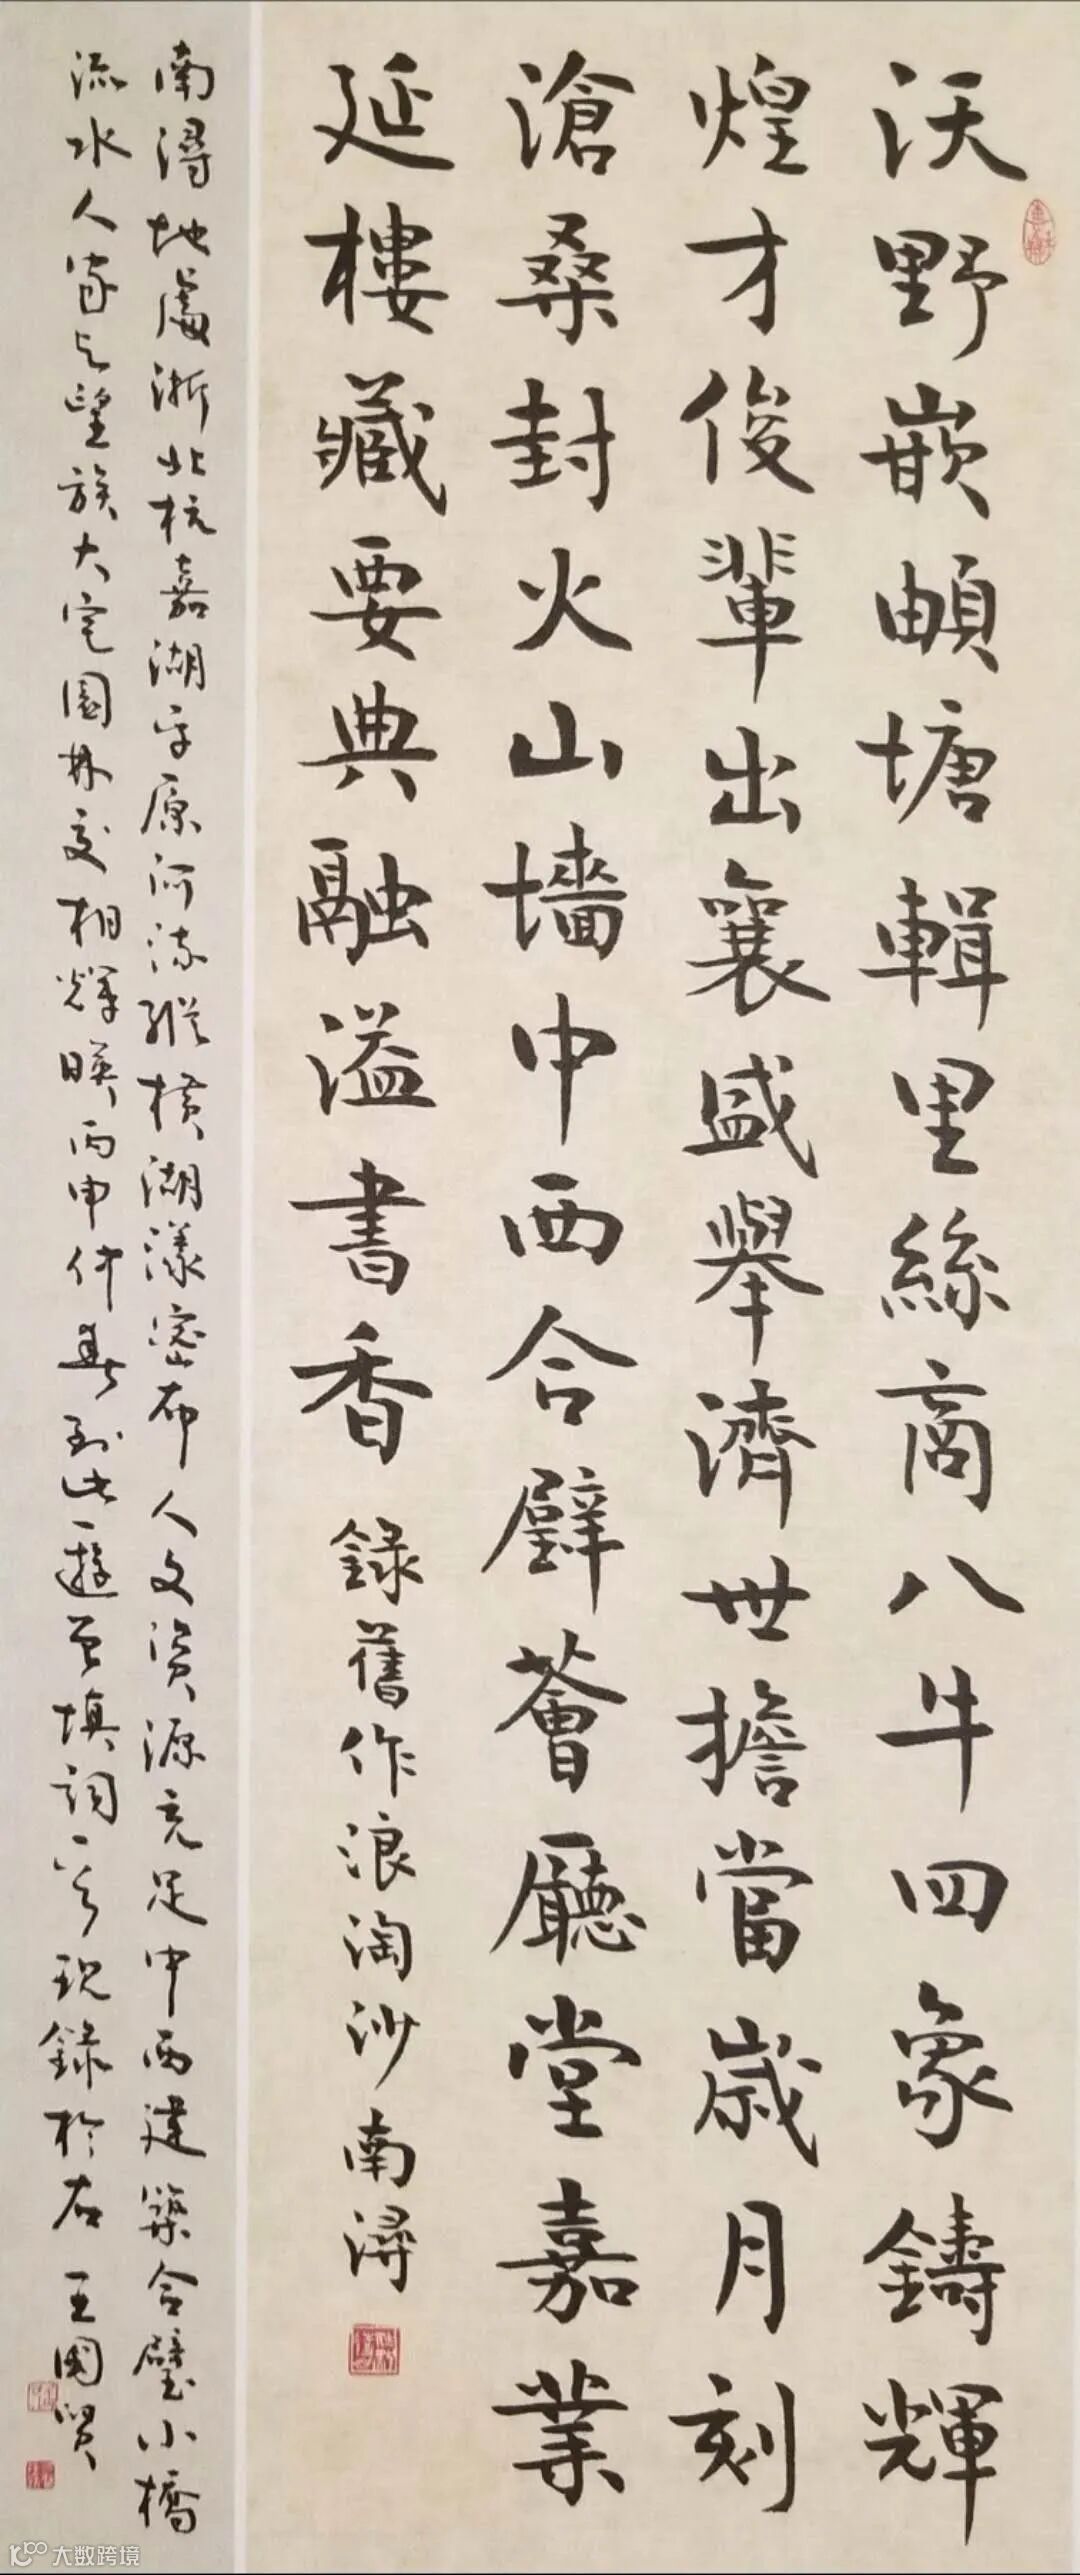 沃野嵌頔塘輯里絲商八牛四象鑄輝
煌才俊輩出襄盛舉濟世擔當歲月刻
滄桑封火山墻中西合璧薈廳堂嘉業
延樓藏要典融溢書香 錄舊作浪淘沙南潯
南潯地處浙北杭嘉湖平原河流縱橫湖漾密布人文資源充足中西建築合璧小橋
流水人家與望族大宅園林交相輝映丙申仲春到此一遊曾填詞一首現錄於右 王國賢
大数跨境